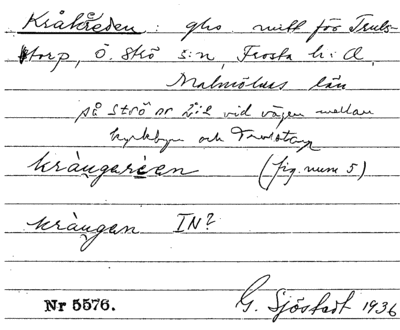 Kråkreden: gho mitt för Truls-
torp, Ö. Strö s:n, Frosta h:d,
Malmöhus län
på Strö nr 2:2 vid vägen mellan
kyrkbyn och Trulstorp
kràngaréen (fig. num 5)
kràngan IN?
Nr 5576. G. Sjöstedt 1936